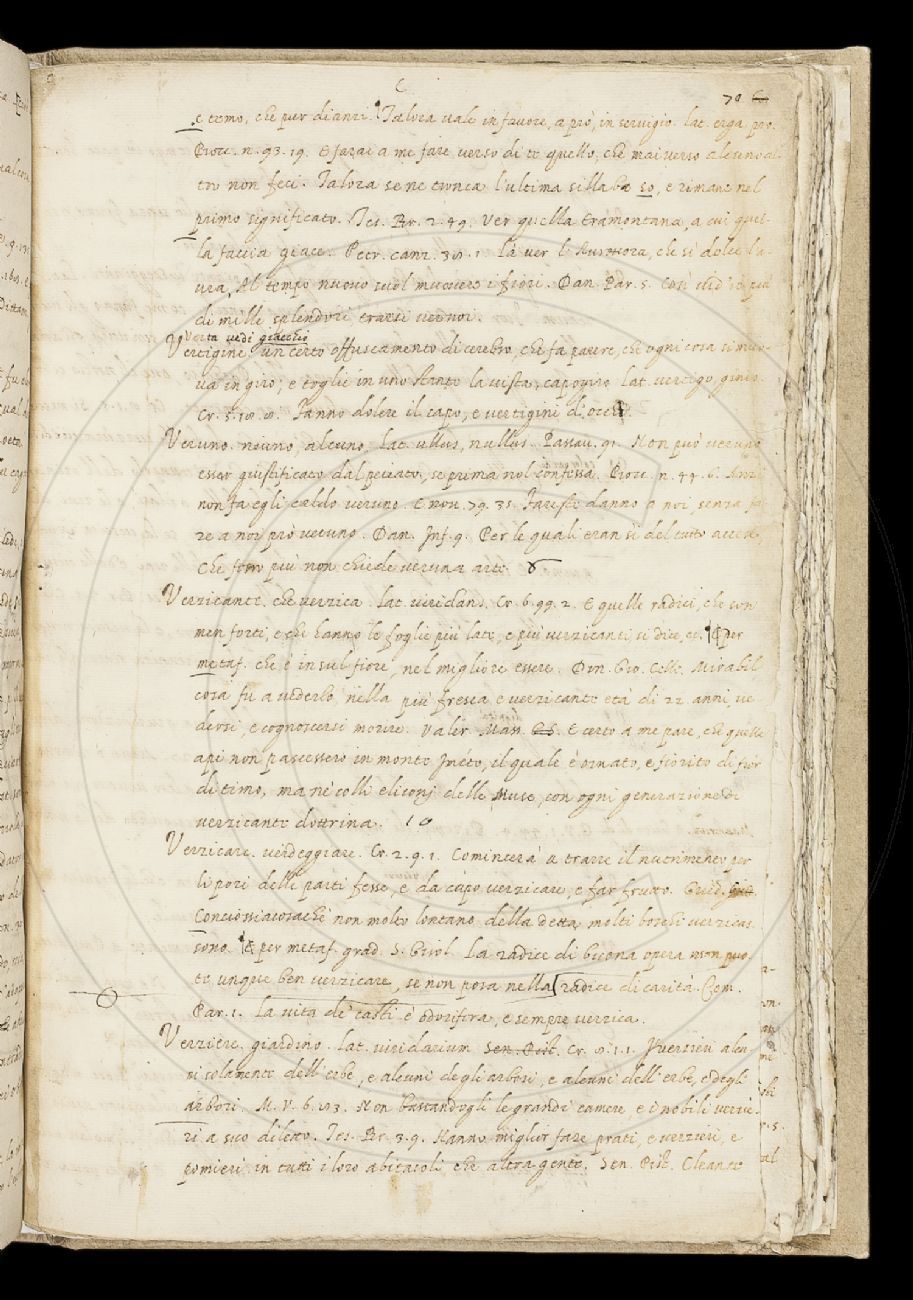 C
70 C
e temo, che per dianzi. Talora vale in favore, a prò, in servigio. lat. erga, pro.
Bocc. n. 93. 19. E farai a me fare verso di te quello, che mai verso alcuno al-
tro non feci. Talora se ne tronca l'ultima sillaba so, e rimane nel
primo significato. Tes. Br. 2. 49. Ver quella tramontana, a cui quel-
la faccia giace. Petr. canz. Là ver l'Aurora, che sì dolce l'a-
ura, Al tempo nuovo suol muovere i fiori. Dan. Par. 5. Così vid'io più
di mille splendori trarsi ver noi.
Verta vedi giacchio
Vertigine un certo offuscamento di cerebro, che fa parere, che ogni cosa si muo-
va in giro, e toglie in uno stante la vista, capogiro. lat. vertigo, ginis.
Cr. 5. Fanno dolere il capo, e vertigini d'occhi.
Veruno. niuno, alcuno. lat. ullus, nullus. Passav. 91. Non può veruno
esser giustificato dal peccato, se prima nol confessa. Bocc. n. 44. 6. Anzi
non fa egli caldo veruno. E nov. 79. 35. Fareste danno a noi, senza fa-
re a voi prò veruno. Dan. Inf. 9. Per le quali eran sì del tutto accese,
Che ferro più non chiede veruna arte.
Verzicante. che verzica. lat. viridans. Cr. 6. 99. 2. E quelle radici, che son
men forti, e che hanno le foglie più late, e più verzicanti si dice, ec. ¶ E per
metaf. che è in sul fiore, nel migliore essere. Din. Gio. Celle. Mirabil
cosa fu a vederlo nella più fresca e verzicante età di 22 anni ve-
dersi, e cognoscersi morire. Valer. Mass. E certo a me pare, che quelle
api non pascessero in monte Imeto, il quale è ornato, e fiorito di fior
di timo, ma ne' colli eliconj delle Muse, con ogni generazione di
verzicante dottrina. 10
Verzicare. verdeggiare. Cr. 2. 9. 1. Comincerà a trarre il nutrimento per
li pori delle parti fesse, e da capo verzicare, e far frutto. Guid.
Conciossiacosachè non molto lontano della detta molti boschi verzicas-
sono. ¶ E per metaf. grad. S. Girol. La radice di buona opera non puo-
te unque ben verzicare, se non posa nella radice di carità. Com.
Par. 1. La vita de' casti è odorifera, e sempre verzica.
Verziere. giardino. lat. viridarium Sen. Pist. Cr. 8. 1. 1. I verzieri alcu-
ni solamente dell'erbe, e alcuni degli arbori, e alcuni dell'erbe, e degli
arbori. M. V. 6. Non bastandogli le grandi camere, e i nobili verzie-
ri a suo diletto. Tes. Br. 3. 9. Hanno miglior fare prati, e verzieri, e
pomieri in tutti i loro abitacoli che altra gente. Sen. Pist. Cleante